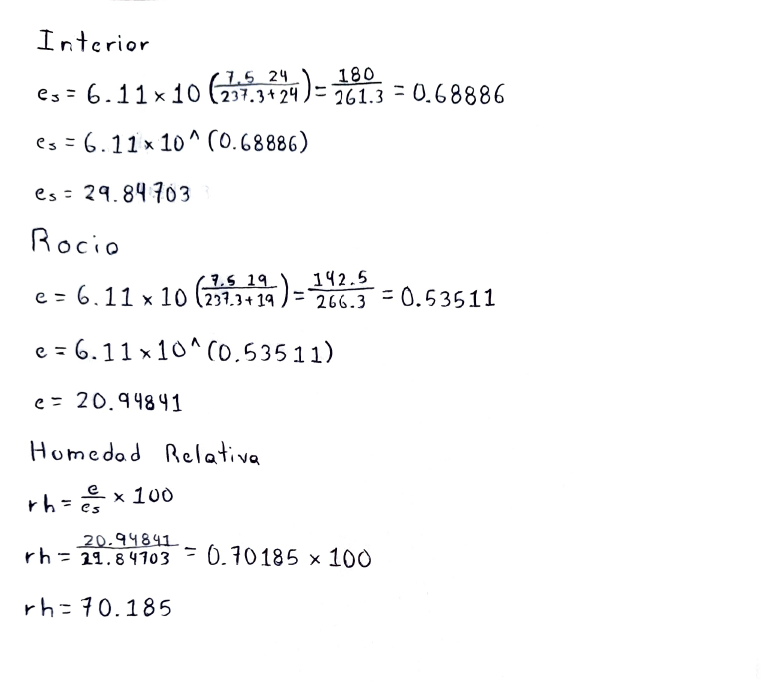 Interior
es = 6.11 x 10 (7.5 24 / 237.3 + 24) = 180 / 261.3 = 0.68886
es = 6.11 x 10 ^ (0.68886)
es = 29.84703
Rocio
e = 6.11 x 10 (7.5 19 / 237.3 + 19) = 142.5 / 266.3 = 0.53511
e = 6.11 x 10 ^ (0.53511)
e = 20.94841
Humedad Relativa
rh = e / es x 100
rh = 20.94841 / 29.84703 = 0.70185 x 100
rh = 70.185